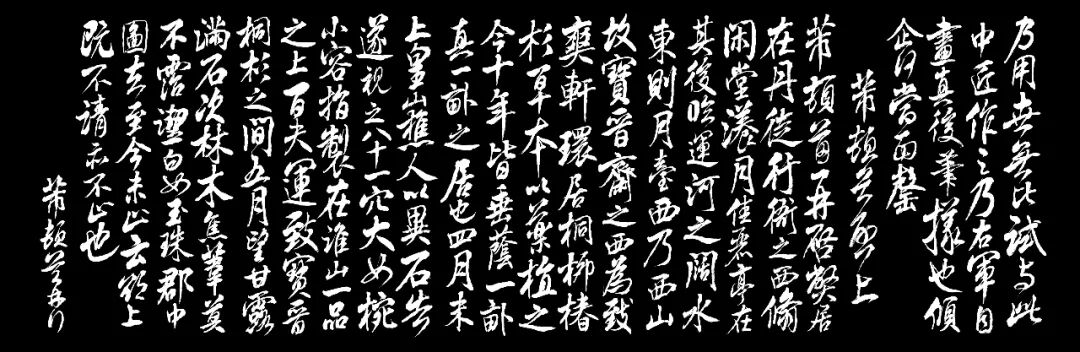 乃用世無比試与此
中匠作之乃右軍自
畫真後筆樣也傾
企何當面罄
芾頓首再上
芾頓首再啓弊居
在丹徒行衙之西脩
閑堂漾月佳麗亭在
其後臨運河之闊水
東則月臺西乃西山
故寶晉齋之西為致
爽軒環居桐柳椿
杉草本以藥植之
今十年皆垂蔭一畝
真一畝之居也四月末
上皇山樵人以異石告
遂視之八十一穴大如椀
小容指製在淮山一品
之上百夫運致寶晉
桐杉之間五月望甘露
滿石次林木焦葦莫
不霑潔白如玉珠郡中
圖去至今未止云欲上
既不請亦不止也
芾頓首再拜